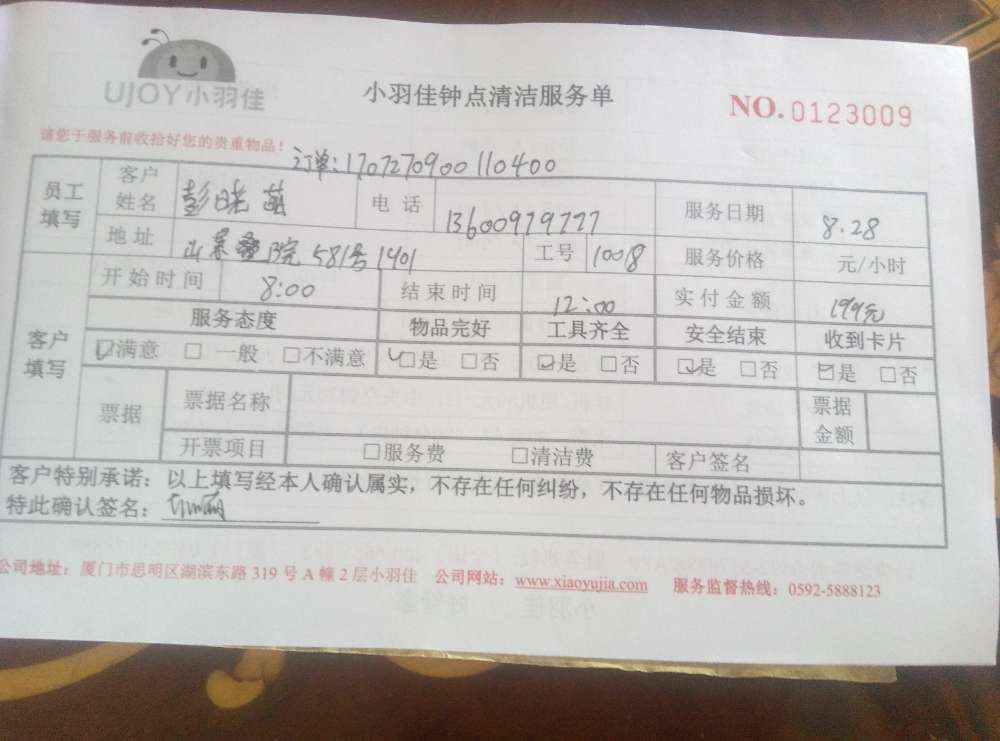 UJOY小羽佳
小羽佳钟点清洁服务单
NO.0123009
请您于服务前收拾好您的贵重物品！
订单:1707270900110400
员工填写 客户姓名 彭晓萌 电话 13600979777 服务日期 8.28
地址 581号1401 工号 10018 服务价格 元/小时
开始时间 8:00 结束时间 12:00 实付金额 199元
客户填写 服务态度 物品完好 工具齐全 安全结束 收到卡片
☑满意 □一般 □不满意 ☑是 □否 ☑是 □否 ☑是 □否 ☑是 □否
票据 票据名称 票据金额
开票项目 □服务费 □清洁费 客户签名
客户特别承诺：以上填写经本人确认属实，不存在任何纠纷，不存在任何物品损坏。
特此确认签名：
公司地址：厦门市思明区湖滨东路 319 号 A 幢 2 层小羽佳 公司网站：www.xiaoyujia.com 服务监督热线：0592-5888123